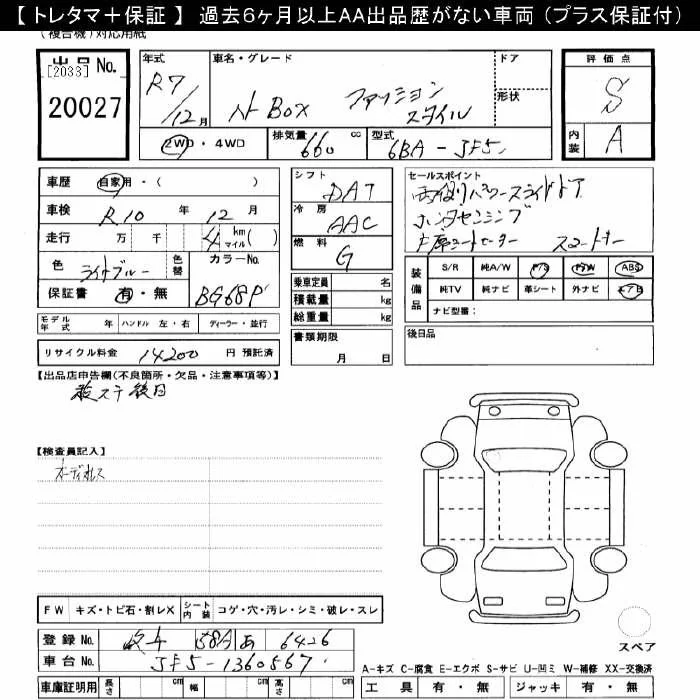 【 トレタマ＋保証 】 過去6ヶ月以上AA出品歴がない車両（プラス保証付）
（複合機）対応用紙
出品 No.
[2033]
20027
年式
R7/12月
車名・グレード
N BOX ファッションスタイル
ドア
形状
評価点
S
内装 A
2WD・4WD
排気量 660 cc
型式 6BA-JF5
車歴 自家用・（ ）
車検 R10 年 12 月
走行 万 千 4 km マイル（ ）
色 ライトブルー
色替
カラーNo. BG68P
保証書 有・無
シフト DAT
冷房 AAC
燃料 G
乗車定員 名
積載量 kg
総重量 kg
セールスポイント
両側パワースライドドア
ホンダセンシング
装備品
S/R 純A/W P/S P/W ABS
純TV 純ナビ 革シート 外ナビ エアB
ナビ型量：
モデル年式 年 ハンドル 左・右 ディーラー・並行
書類期限
月 日
後日品
リサイクル料金 14200 円 預託済
【出品店申告欄（不良箇所・欠品・注意事項等）】
後日
【検査員記入】
オーディオレス
FW キズ・トビ石・割レX シート内装 コゲ・穴・汚レ・シミ・破レ・スレ
登録 No. 岐阜 581A あ 6426
車台 No. JF5-1360567
スペア
A-キズ C-腐食 E-エクボ S-サビ U-凹ミ W-補修 XX-交換済
車庫証明用 長さ cm 幅 cm 高さ cm
工具 有・無 ジャッキ 有・無